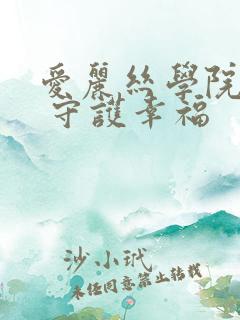 愛麗絲學院
守護幸福
沙小玳
未經同意禁止轉載